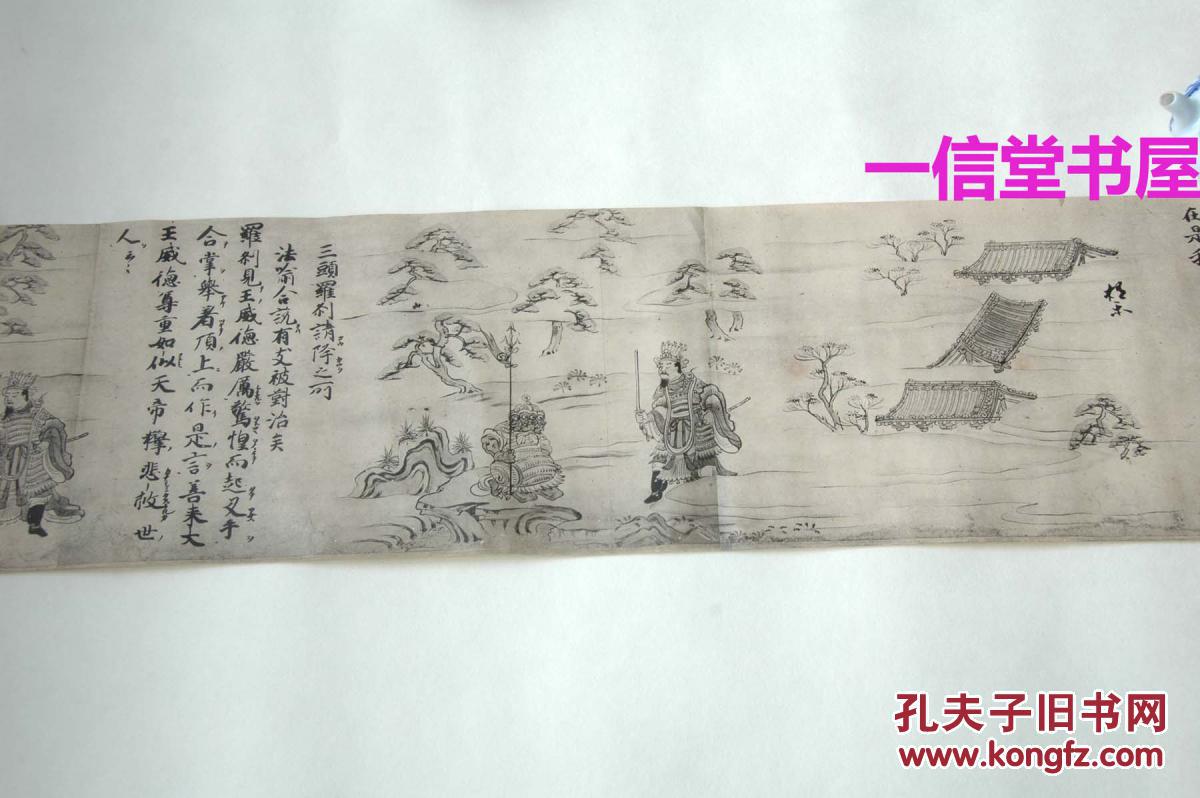 一信堂书屋
在是
三頭羅刹請降之所
法喻合説有文被對治矣
羅刹見王威徳嚴厲驚惶而起叉手
合掌舉著頂上而作是言善来大
王威徳尊重如似天帝釋悲愍世
人云云
孔夫子旧书网
www.kongfz.com